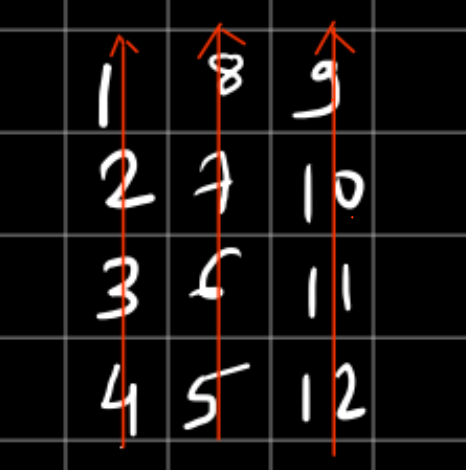 1 8 9
2 7 10
3 6 11
4 5 12